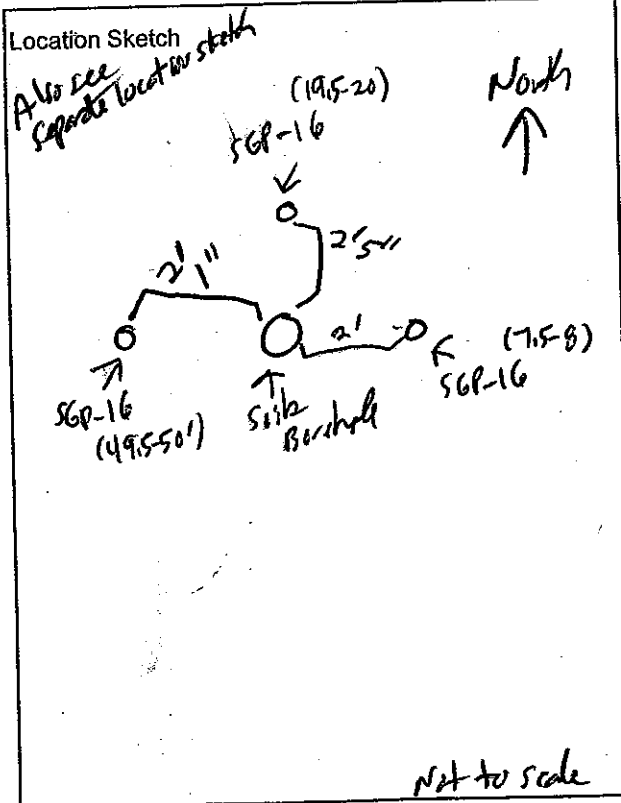 Location Sketch
Also see
separate location sketch
North
(19.5-20)
SGP-16
2'5"
2' 1"
2'
(7.5-8)
SGP-16
SGP-16
(49.5-50')
Soils
Borehole
Not to scale